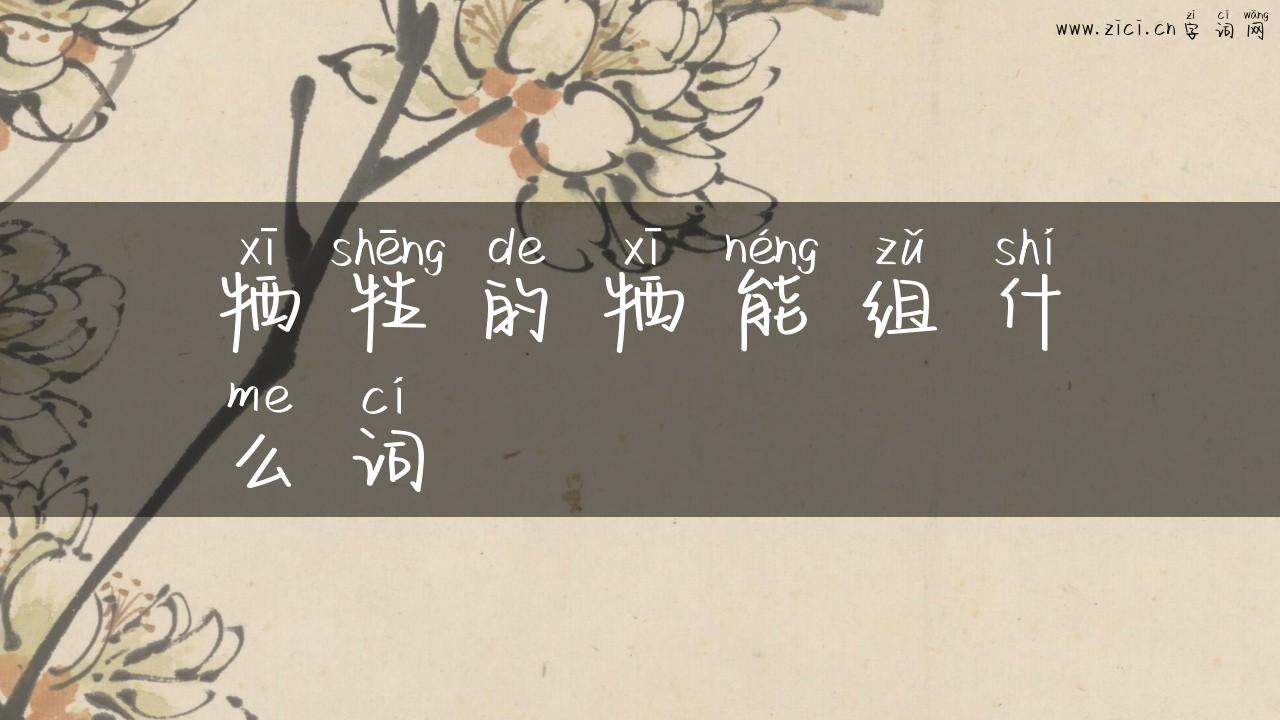 zì cí wǎng
www.zici.cn 字 词 网
xī shēng de xī néng zǔ shí
牺 牲 的 牺 能 组 什
me cí
么 词